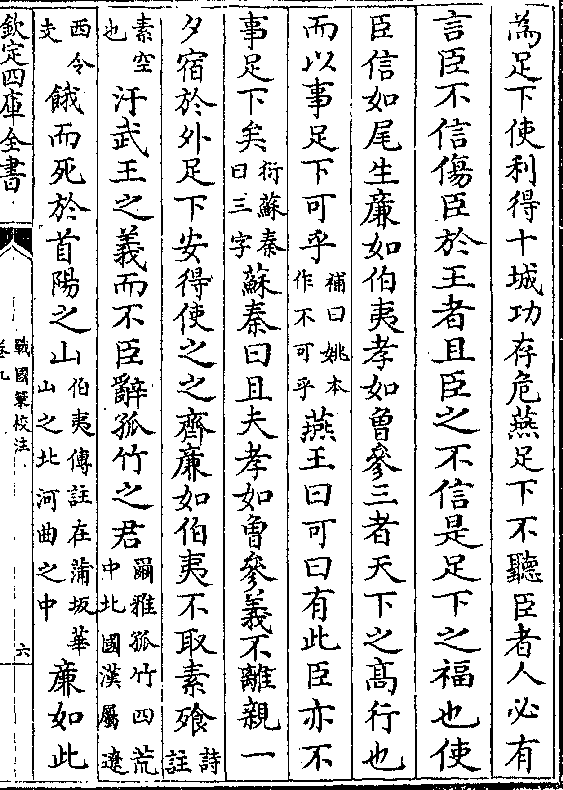 為足下使利得十城功存危燕足下不聽臣者人必有
言臣不信傷臣於王者且臣之不信是足下之福也使
臣信如尾生廉如伯夷孝如曾參三者天下之髙行也
而以事足下可乎補曰姚本作不可乎燕王曰可曰有此臣亦不
事足下矣衍蘇秦曰三字蘇秦曰且夫孝如曾參義不離親一
夕宿於外足下安得使之之齊廉如伯夷不取素飱詩註
素空也汙武王之義而不臣辭孤竹之君爾雅孤竹四荒中北國漢屬遼
西令支餓而死於首陽之山伯夷傳註在蒲坂華山之北河曲之中廉如此
欽定四庫全書
戰國策校注
卷九
六